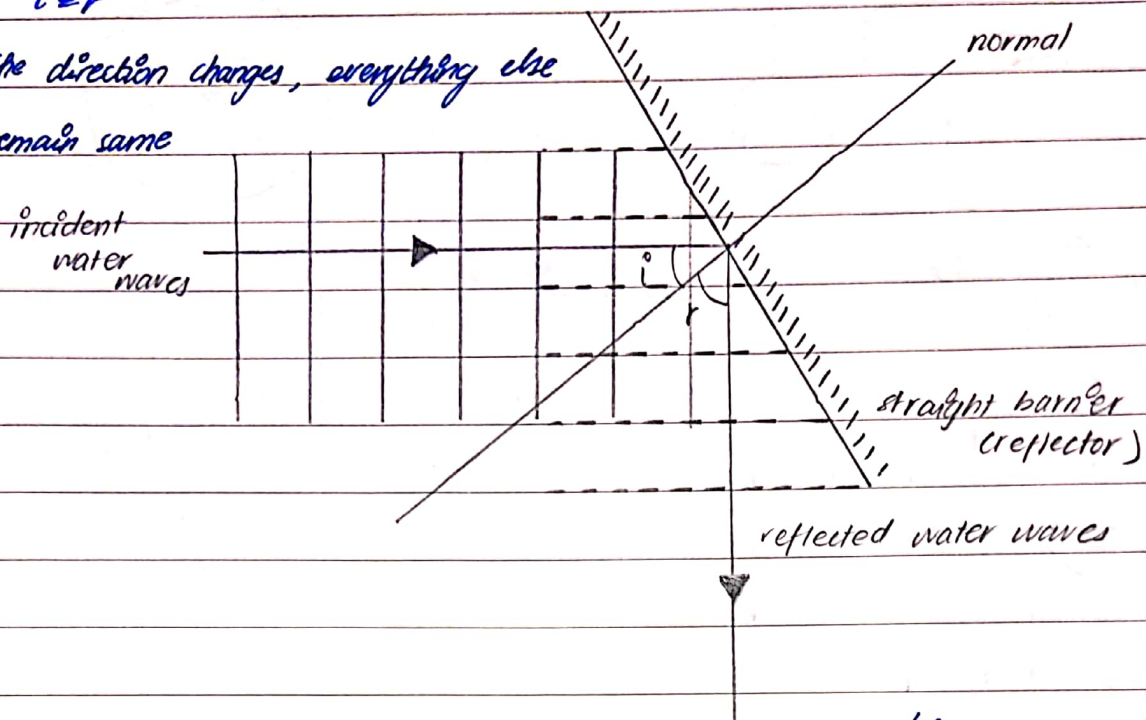 i=r
he direction changes, everything else
emain same
normal
incident
water
waves
i
r
straight barrier
(reflector)
reflected water waves